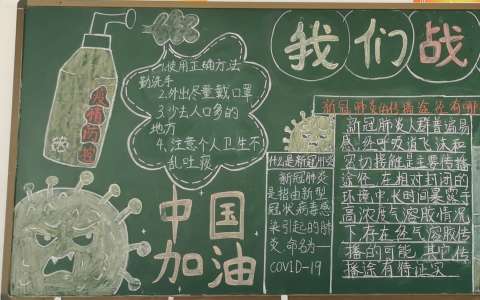 疫情防控
1.使用正确方法
勤洗手
2.外出尽量戴口罩
3.少去人口多的
地方
4.注意个人卫生不
乱吐痰
中国
加油
我们战
新冠肺炎的传播途径有哪
什么是新冠肺炎
新冠肺炎
是指由新型
冠状病毒感
染引起的肺
炎,命名为—
COVID-19
新冠肺炎人群普遍易
感,经呼吸道飞沫和
密切接触是主要传播
途径,在相对封闭的
环境中长时间暴露于
高浓度气溶胶情况
下存在经气溶胶传
播的可能,其它传
播途径有待证实